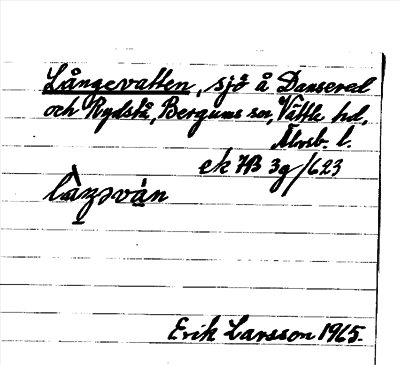 Långevatten, sjö å Dansered
och Rydstå, Bergums sn, Vättle hd,
Älvsb. l.
ek 7B 3g/623
Erik Larsson 1965.